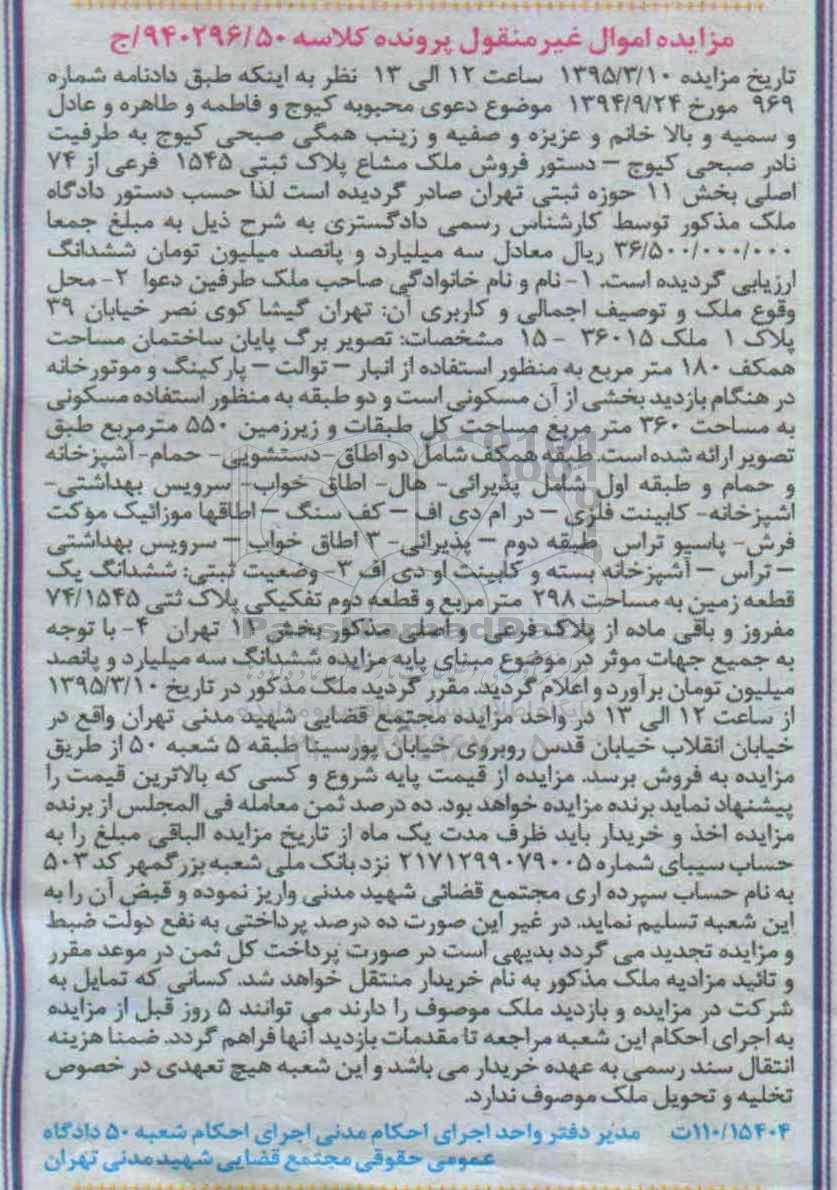 مزایده اموال غیرمنقول پرونده کلاسه ۹۴۰۲۹۶/۵۰/ج
تاریخ مزایده ۱۳۹۵/۳/۱۰ ساعت ۱۲ الی ۱۳ نظر به اینکه طبق دادنامه شماره
۹۶۹ مورخ ۱۳۹۴/۹/۲۴ موضوع دعوی محبوبه کیوج و فاطمه و طاهره و عادل
و سمیه و بالا خانم و عزیزه و صفیه و زینب همگی صبحی کیوج به طرفیت
نادر صبحی کیوج – دستور فروش ملک مشاع پلاک ثبتی ۱۵۴۵ فرعی از ۷۴
اصلی بخش ۱۱ حوزه ثبتی تهران صادر گردیده است لذا حسب دستور دادگاه
ملک مذکور توسط کارشناس رسمی دادگستری به شرح ذیل به مبلغ جمعا
۳۶/۵۰۰/۰۰۰/۰۰۰ ریال معادل سه میلیارد و پانصد میلیون تومان ششدانگ
ارزیابی گردیده است. ۱- نام و نام خانوادگی صاحب ملک طرفین دعوا ۲- محل
وقوع ملک و توصیف اجمالی و کاربری آن: تهران گیشا کوی نصر خیابان ۳۹
پلاک ۱ ملک ۳۶۰۱۵ - ۱۵ مشخصات: تصویر برگ پایان ساختمان مساحت
همکف ۱۸۰ متر مربع به منظور استفاده از انبار – توالت – پارکینگ و موتورخانه
در هنگام بازدید بخشی از آن مسکونی است و دو طبقه به منظور استفاده مسکونی
به مساحت ۳۶۰ متر مربع مساحت کل طبقات و زیرزمین ۵۵۰ مترمربع طبق
تصویر ارائه شده است. طبقه همکف شامل دو اطاق- دستشویی- حمام- آشپزخانه
و حمام و طبقه اول شامل پذیرائی- هال- اطاق خواب- سرویس بهداشتی-
اشپزخانه- کابینت فلزی – در ام دی اف – کف سنگ – اطاقها موزائیک موکت
فرش- پاسیو تراس طبقه دوم – پذیرائی- ۳ اطاق خواب – سرویس بهداشتی
– تراس – آشپزخانه بسته و کابینت او دی اف ۳- وضعیت ثبتی: ششدانگ یک
قطعه زمین به مساحت ۲۹۸ متر مربع و قطعه دوم تفکیکی پلاک ثتی ۷۴/۱۵۴۵
مفروز و باقی ماده از پلاک فرعی و اصلی مذکور بخش ۱۱ تهران ۴- با توجه
به جمیع جهات موثر در موضوع مبنای پایه مزایده ششدانگ سه میلیارد و پانصد
میلیون تومان برآورد و اعلام گردید. مقرر گردید ملک مذکور در تاریخ ۱۳۹۵/۳/۱۰
از ساعت ۱۲ الی ۱۳ در واحد مزایده مجتمع قضایی شهید مدنی تهران واقع در
خیابان انقلاب خیابان قدس روبروی خیابان پورسینا طبقه ۵ شعبه ۵۰ از طریق
مزایده به فروش برسد. مزایده از قیمت پایه شروع و کسی که بالاترین قیمت را
پیشنهاد نماید برنده مزایده خواهد بود. ده درصد ثمن معامله فی المجلس از برنده
مزایده اخذ و خریدار باید ظرف مدت یک ماه از تاریخ مزایده الباقی مبلغ را به
حساب سیبای شماره ۲۱۷۱۲۹۹۰۷۹۰۰۵ نزد بانک ملی شعبه بزرگمهر کد ۵۰۳
به نام حساب سپرده اری مجتمع قضائی شهید مدنی واریز نموده و قبض آن را به
این شعبه تسلیم نماید. در غیر این صورت ده درصد پرداختی به نفع دولت ضبط
و مزایده تجدید می گردد بدیهی است در صورت پرداخت کل ثمن در موعد مقرر
و تائید مزادیه ملک مذکور به نام خریدار منتقل خواهد شد. کسانی که تمایل به
شرکت در مزایده و بازدید ملک موصوف را دارند می توانند ۵ روز قبل از مزایده
به اجرای احکام این شعبه مراجعه تا مقدمات بازدید آنها فراهم گردد. ضمنا هزینه
انتقال سند رسمی به عهده خریدار می باشد و این شعبه هیچ تعهدی در خصوص
تخلیه و تحویل ملک موصوف ندارد.
۱۱۰/۱۵۴۰۴ت مدیر دفتر واحد اجرای احکام مدنی اجرای احکام شعبه ۵۰ دادگاه
عمومی حقوقی مجتمع قضایی شهید مدنی تهران